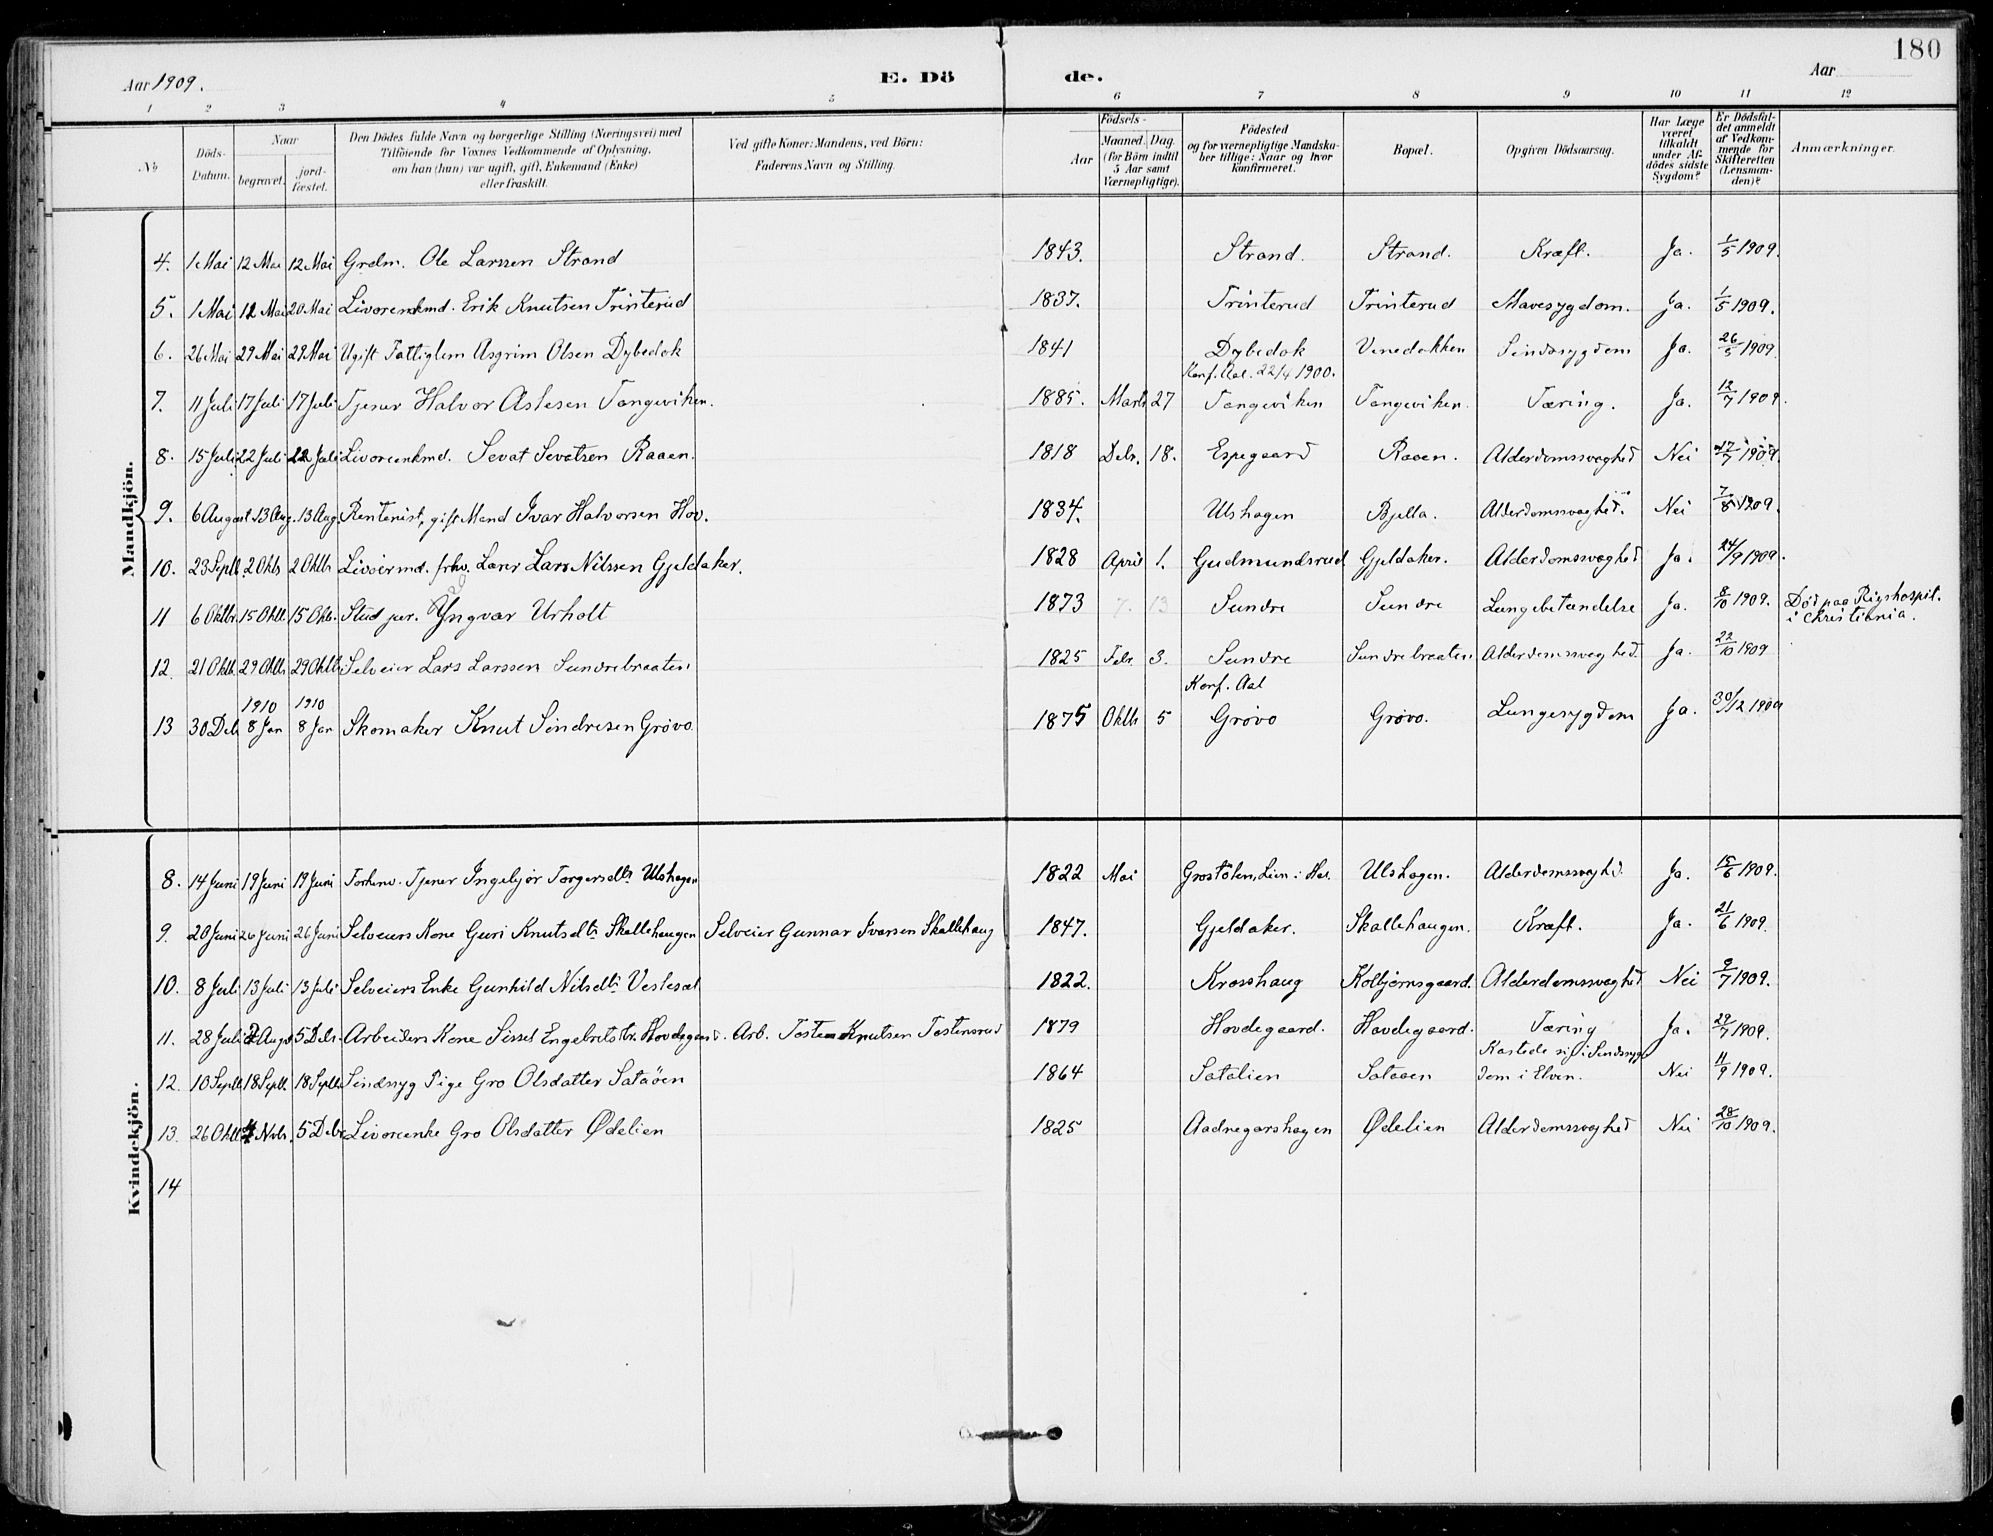 180
Aar 1909.
E. Dö
de.
Aar
1 2 3 4 5 6 7 8 9 10 11 12
No
Döds-Datum.
Naar
begravet.
jord-fæstet.
Den Dödes fulde Navn og borgerlige Stilling (Næringsvei) med
Tilföiende for Voxnes Vedkommende af Oplysning,
om han (hun) var ugift, gift, Enkemand (Enke)
eller fraskilt.
Ved gifte Koner: Mandens, ved Börn:
Faderens Navn og Stilling.
Födsels-
Aar
Maaned. Dag.
(for Börn indtil
5 Aar samt
Værnepligtige).
Födested
og for værnepligtige Mandska-
ber tillige: Naar og hvor
konfirmeret.
Bopæl.
Opgiven Dödsaarsag.
Har Læge
været
tilkaldt
under Af-
dödes sidste
Sygdom?
Er Dödsfal-
det anmeldt
af Vedkom-
mende for
Skifteretten
(Lensman-
den)?
Anmærkninger.
Mandkjön.
4. 1 Mai 12 Mai 12 Mai Grdm. Ole Larssen Strand 1843. Strand. Strand. Kræft. Ja. 1/5 1909.
5. 1 Mai 12 Mai 20 Mai Livørenkmd. Erik Knutsen Trinterud 1837. Trinterud Trinterud Mavesygdom. Ja. 1/5 1909.
6. 26 Mai 29 Mai 29 Mai Ugift Fattiglem Asgrim Olsen Dybedok 1841 Dybedok Vinedokken Sindssygdom Ja. 26/5 1909
Konf. Aal. 22/4 1900.
7. 11 Juli 17 Juli 17 Juli Tjener Halvor Aslesen Tangeviken. 1885. Marts 27 Tangeviken Tangeviken. Tæring. Ja. 12/7 1909.
8. 15 Juli 22 Juli 22 Juli Livørenkmd. Sevat Sevatsen Raaen. 1818 Debr. 18. Espegaard Raaen. Alderdomssvaghed Nei 17/7 1909.
9. 6 August 13 Aug. 13 Aug. Rentenist, gift Mand Ivar Halvorsen Hov. 1834. Ulshagen Bjella. Alderdomssvaghed. Nei 7/8 1909.
10. 23 Septb. 2 Oktb 2 Oktb. Livøirmd. frhv. Lærer Lars Nilssen Gjeldaker. 1828 April 1. Gudmundsrud Gjeldaker. Alderdomssvaghed Ja. 24/9 1909.
11 6 Oktbr. 15 Oktb. 15 Oktb. Stud jur. Yngvar Urholt 1873 7. 13 Sundre Sundre Lungebetændelse Ja. 8/10 1909. Död paa Rigshospit.
i Christiania.
12. 21 Oktb. 29 Oktb. 29 Oktb. Selveier Lars Larssen Sundrebraaten 1825 Febr. 3. Sundre Sundrebraaten Alderdomssvaghed. Ja. 22/10 1909
1910 1910 Konf. Aal
13 30 Deb. 8 Jan 8 Jan Skomaker Knut Sindresen Grøvo 1875 Oktb 5 Grøvo Grøvo. Lungesygdom Ja. 30/12 1909
Kvindekjön.
8. 14 Juni 19 Juni 19 Juni Forhenv. Tjener Ingebjør Torgersdtr. Ulshagen 1822 Mai Grostölen, Lien i Hol. Ulshagen. Alderdomssvaghed. Ja. 15/6 1909.
9. 20 Juni 26 Juni 26 Juni Selveiers Kone Guri Knutsdtr. Skallehaugen Selveier Gunnar Ivarsen Skallehaug 1847. Gjeldaker. Skallehaugen. Kræft. Ja. 21/6 1909.
10. 8 Juli 13 Juli 13 Juli Selveiers Enke Gunhild Nilsdtr. Veslesæt 1822. Krosshaug Kolbjørnsgaard. Alderdomssvaghed Nei 9/7 1909.
11. 28 Juli 2 Augst 5 Debr. Arbeiders Kone Sissel Engebretsdtr. Hovdegaard. Arb. Tosten Knutsen Tostensrud 1879 Hovdegaard. Hovdegaard. Tæring Ja. 29/7 1909.
Kastede sig i Sindssyg-
12. 10 Septb. 18 Septb. 18 Septb. Sindssyg Pige Gro Olsdatter Sataøen 1864 Satalien Sataøen dom i Elven. Nei 11/9 1909.
13. 26 Oktb. 4 Nvbr. 5 Debr Livøreenke Gro Olsdatter Ødelien 1825 Aadnegarshagen Ødelien Alderdomssvaghed Nei 28/10 1909.
14